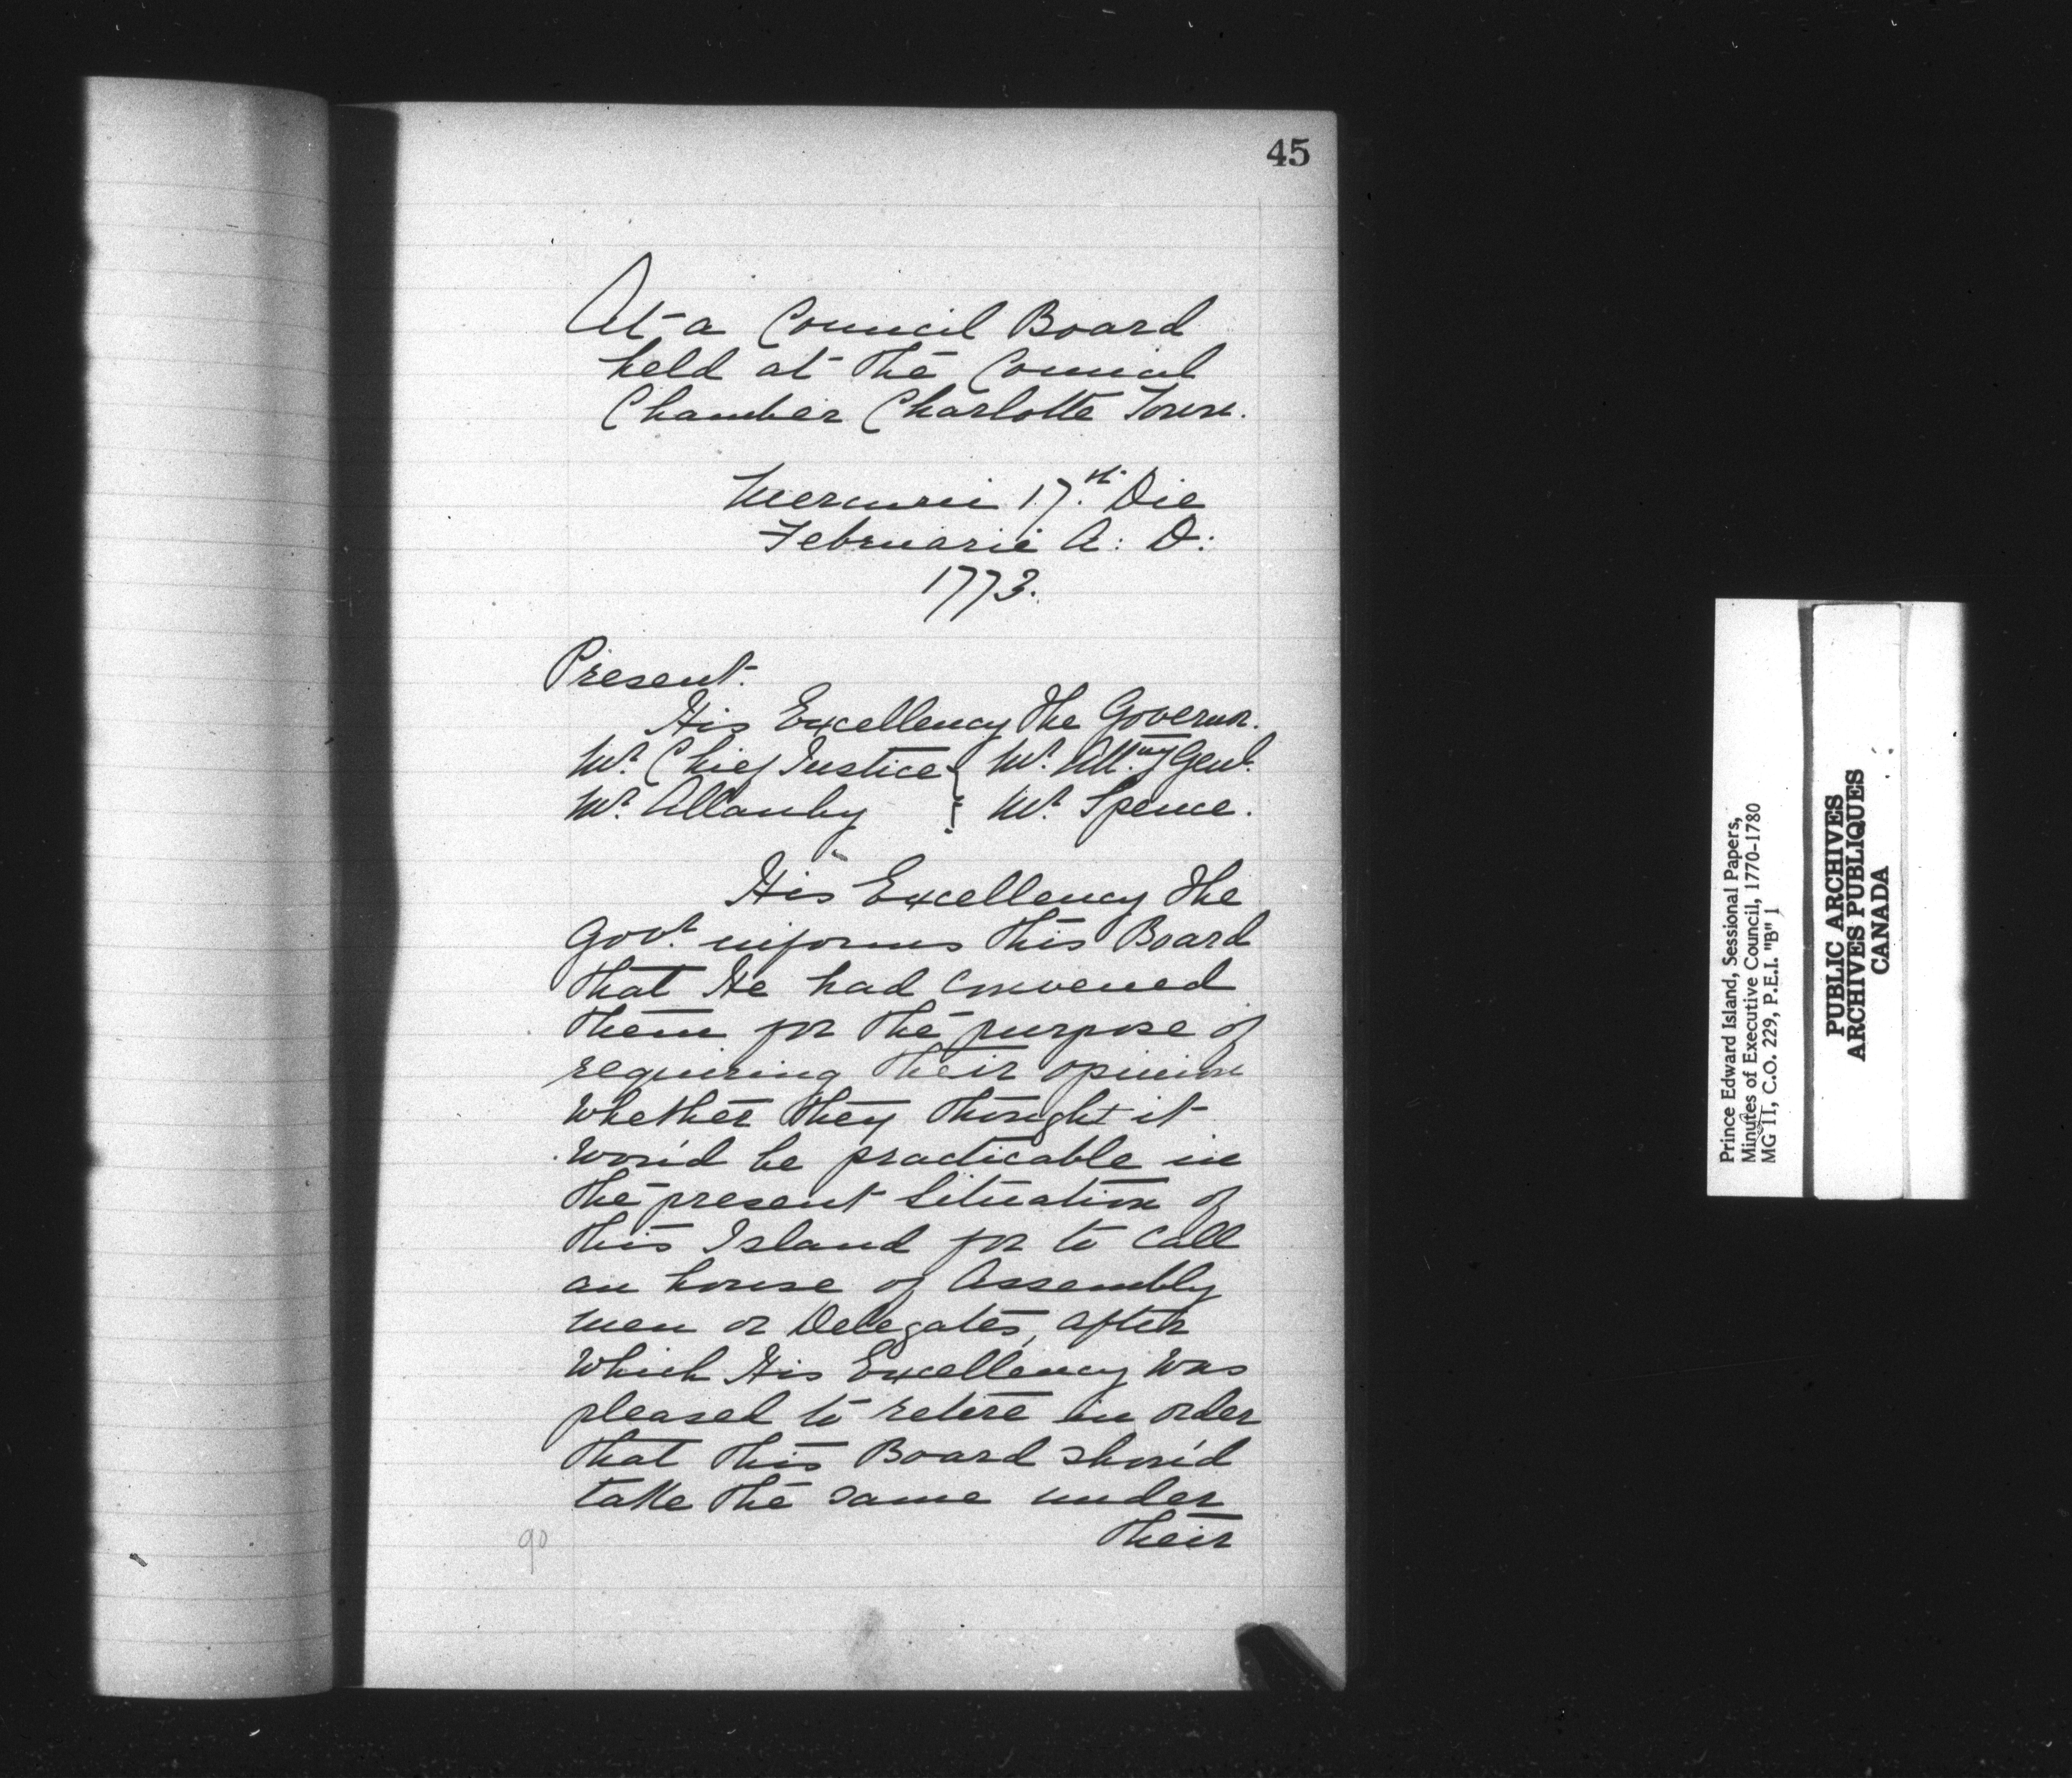 45
At a Council Board
held at the Council
Chamber Charlotte Town.
Mercurii 17.th Die
Februarie A: D:
1773.
Present.
His Excellency the Governor.
Mr. Chief Justice } Mr. Att.ny Genl.
Mr. Allanby } Mr. Spence.
His Excellency the
Govr. informs this Board
that He had convened
them for the purpose of
requiring their opinion
whether they thought it
wou'd be practicable in
the present Situation of
this Island for to Call
an house of Assembly
men or Delegates, after
which His Excellency was
pleased to retire in order
that this Board shou'd
take the same under
their
90
Prince Edward Island, Sessional Papers,
Minutes of Executive Council, 1770-1780
MG 11, C.O. 229, P.E.I. "B" 1
PUBLIC ARCHIVES
ARCHIVES PUBLIQUES
CANADA